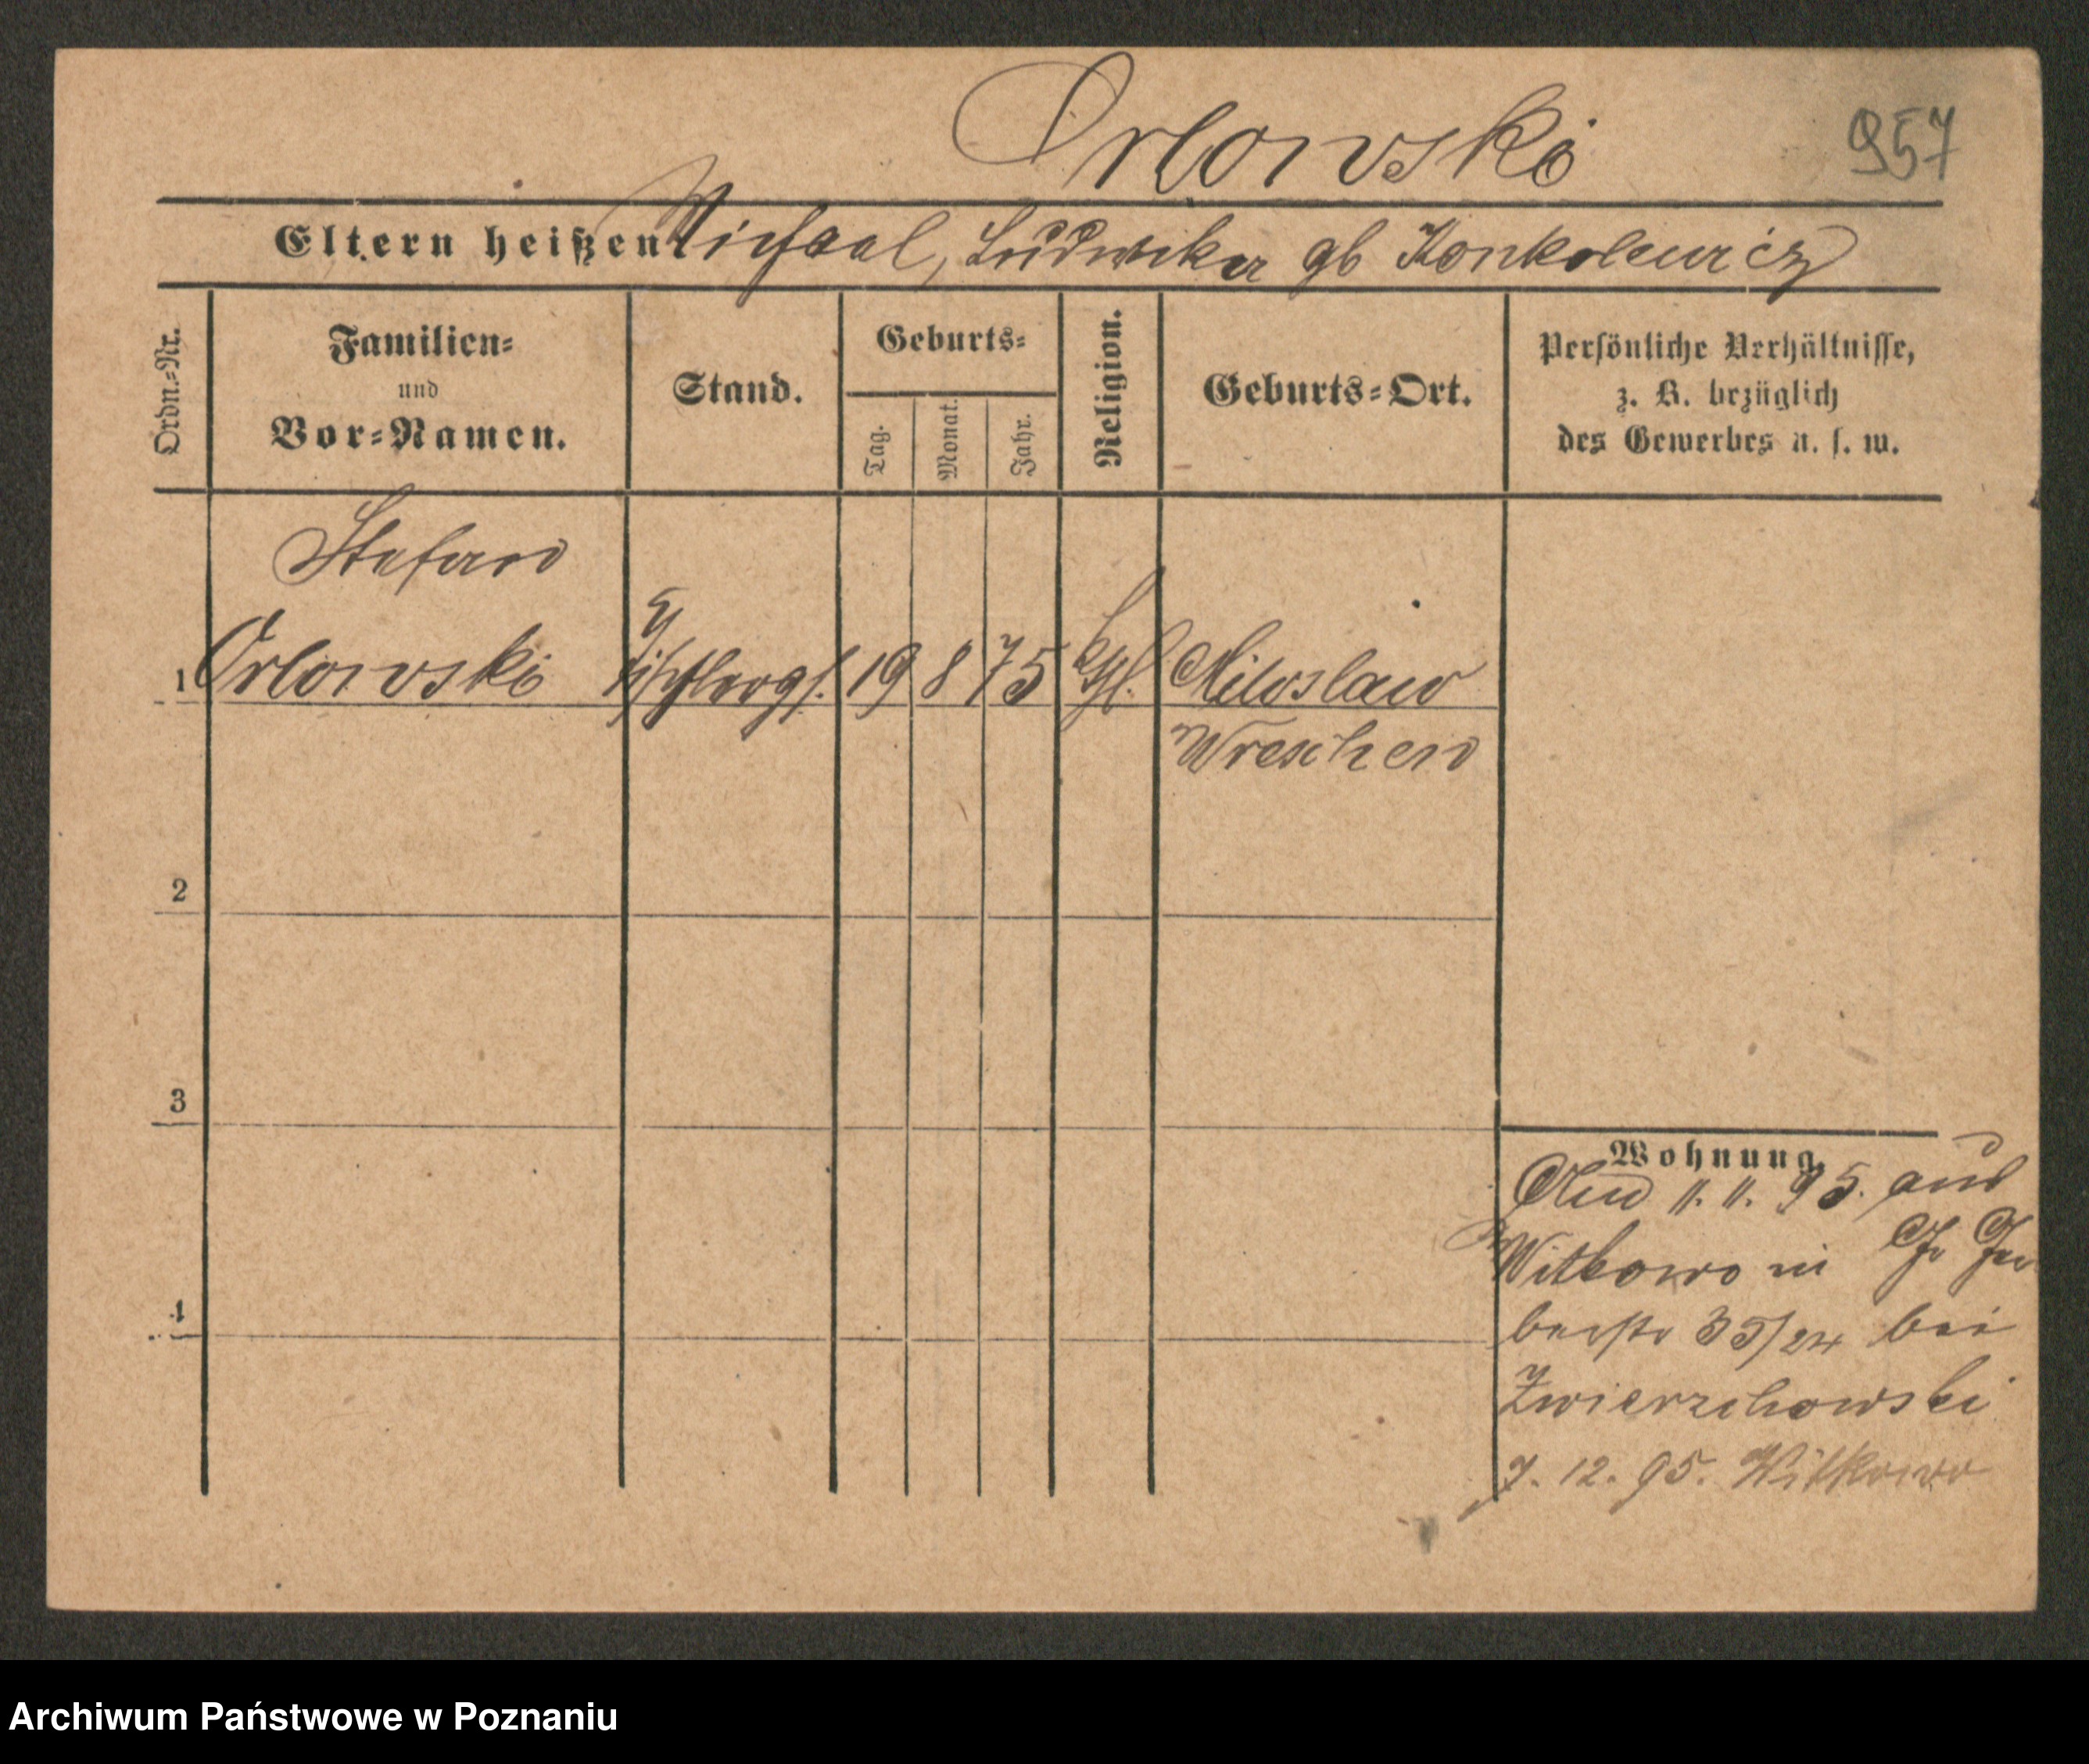 Orlowski
957
Eltern heißen Michael, Ludwika gb Konkolewicz
Ordn.-Nr.
Familien-
und
Vor-Namen.
Stand.
Geburts-
Tag.
Monat.
Jahr.
Religion.
Geburts-Ort.
Persönliche Verhältnisse,
z. B. bezüglich
des Gewerbes u. s. w.
Stefan
1 Orlowski Tischlergs. 19 8 75 Kthl. Miloslaw
Wreschen
2
3
4
Wohnung.
11. 11. 95. aus
Witkowo in Gr Ger
berstr 35/24 bei
Zwierzchowski
7. 12. 95. Witkowo
Archiwum Państwowe w Poznaniu